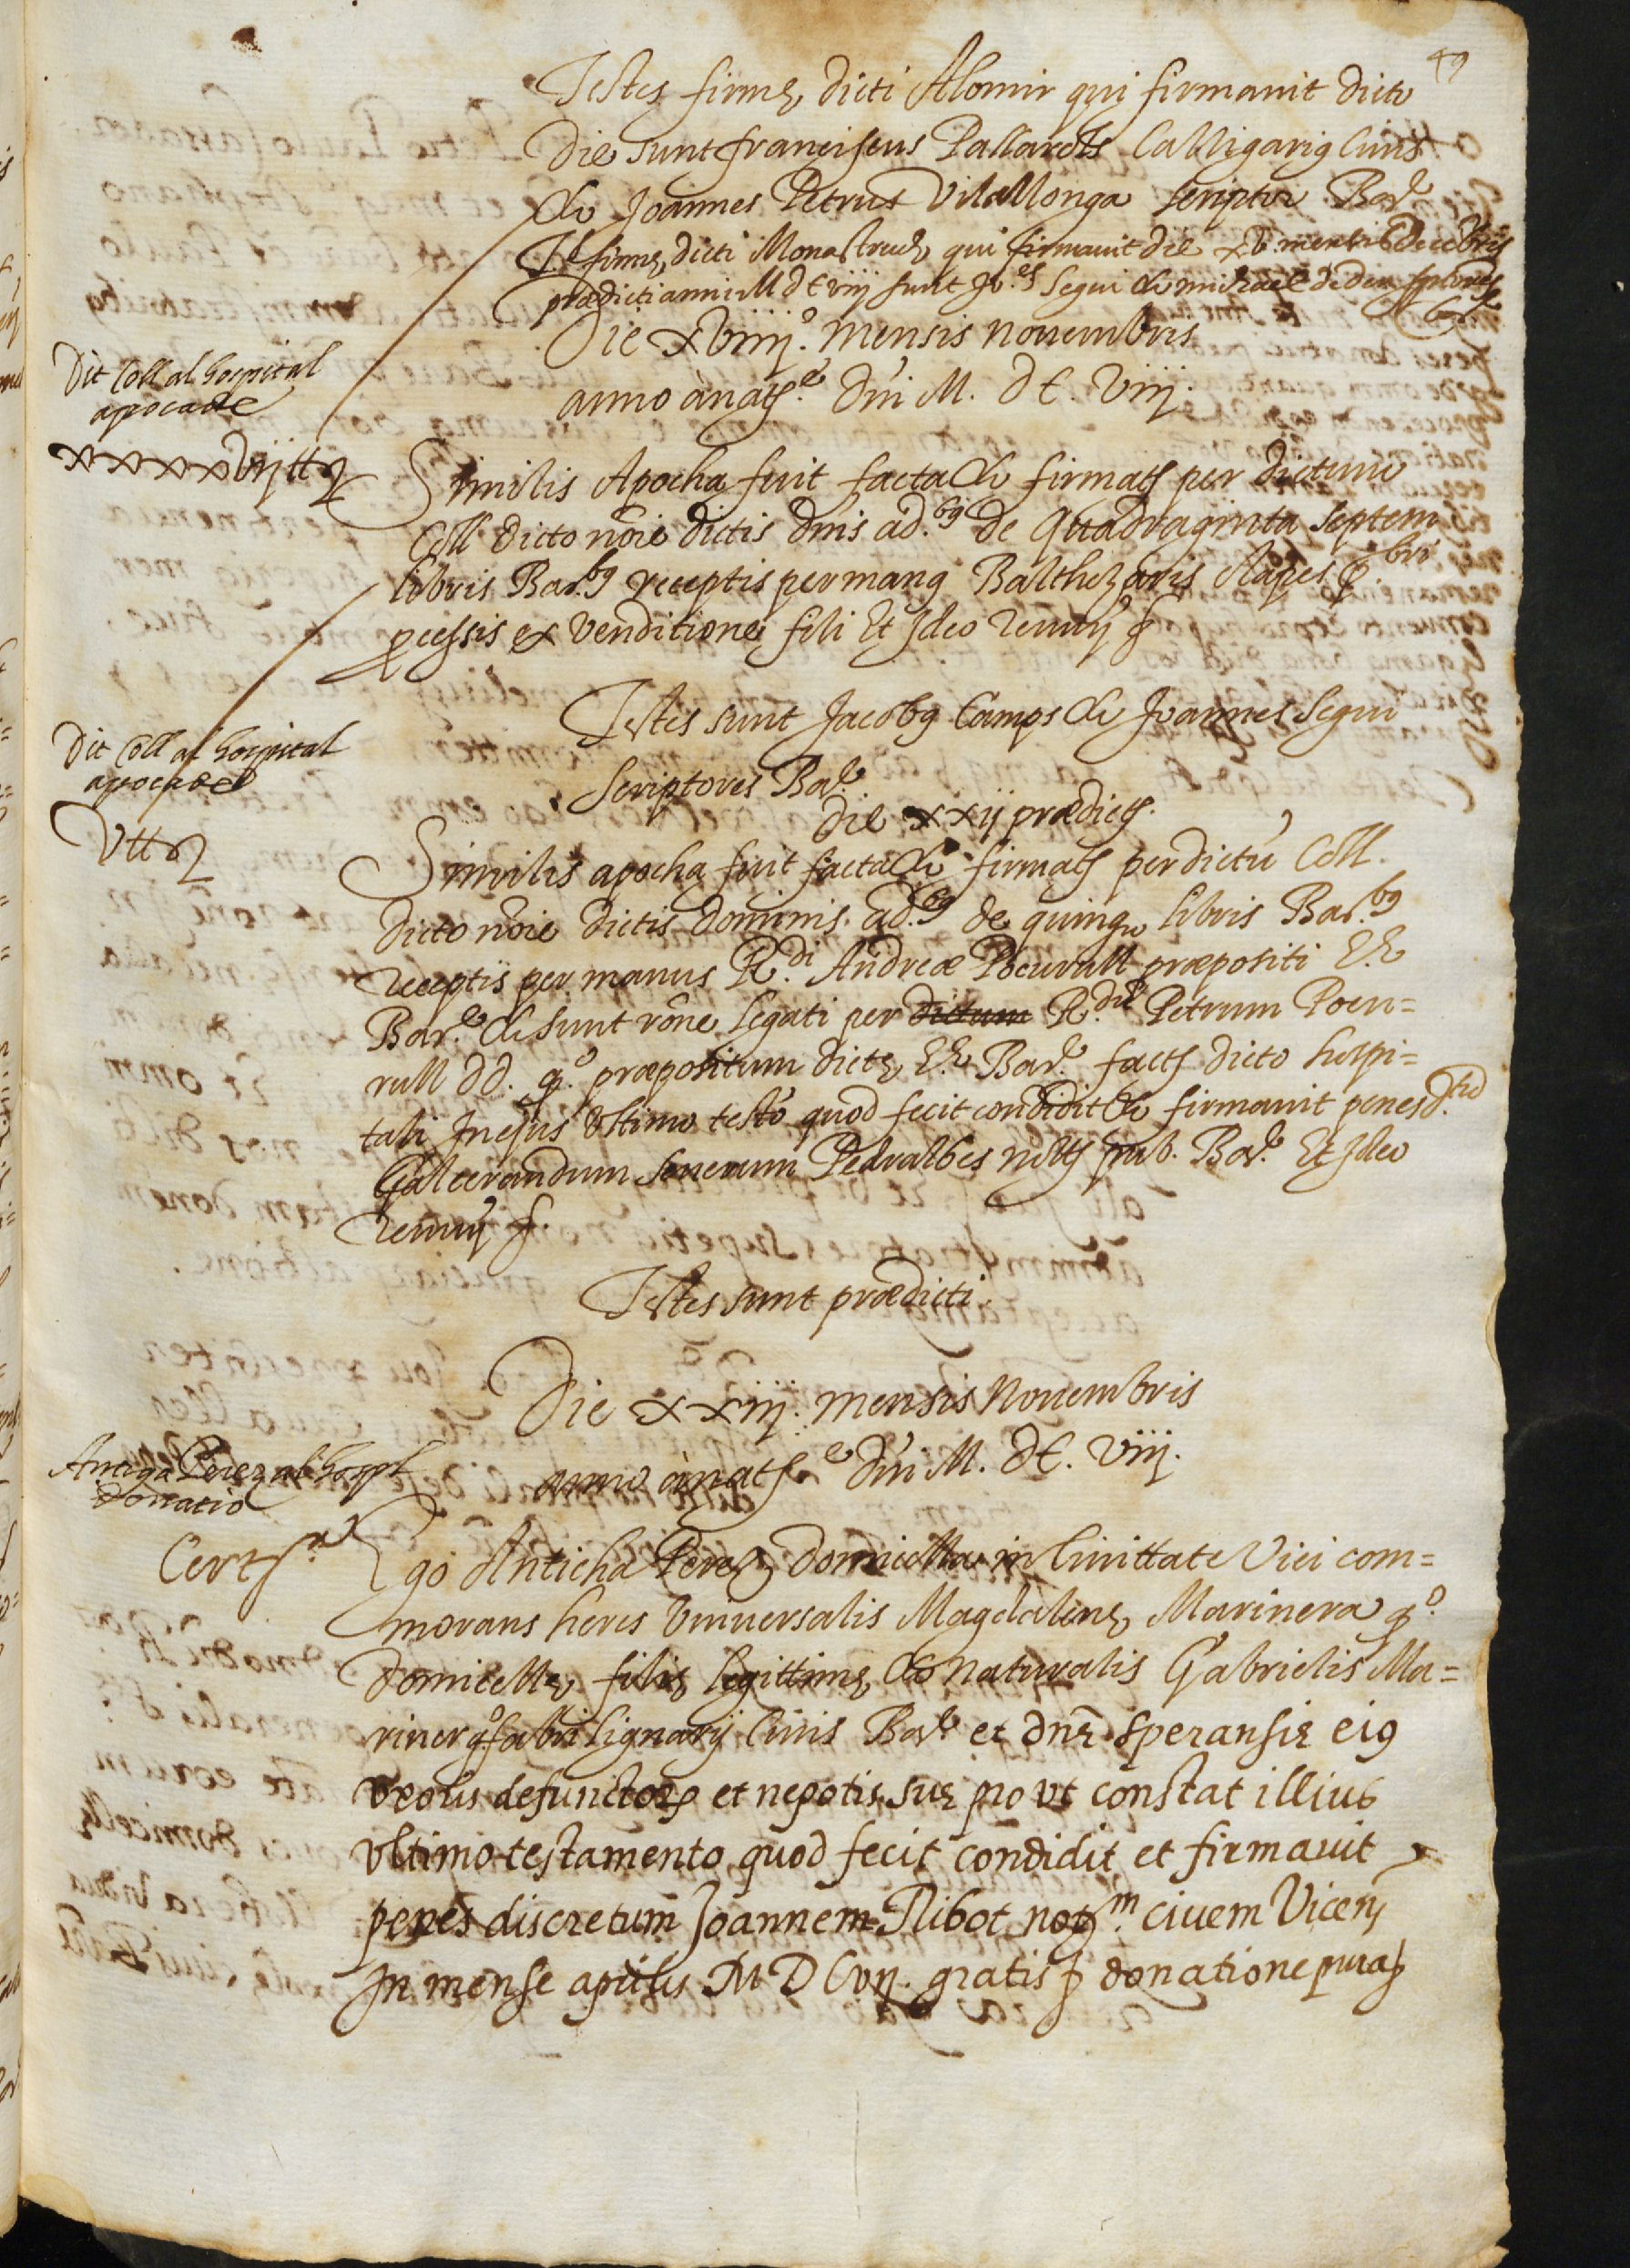 49
Testes firmę dicti Alomir qui firmavit dicto
die sunt franciscus Pallarols Calligariꝰ Civis
& Joannes Petrus Vilallonga scriptor Barᵉ
Tˢ firmę dicti Monastruch, qui firmavit die xv mensis decebris
prædicti anni M dC viij sunt Joᵉˢ Segui & michael dedeu sptores
Barᵉ
Die xviiijᵒ. mensis novembris
anno à natᵉ. Dñi M. dC. Viij.
Dit Coll al hospital
apoca de
xxxxvij ₶
Similis Apocha fuit facta & firmata per dictum
Coll dicto nõie dictis dñis ad.bꝰ de Quadraginta septem
libris Bar.bꝰ receptis per manꝰ Balthezaris Rapes
pcessis ex venditione fili Et Ideo renuñ &
Testes sunt Jacobꝰ Camps & Joannes Segui
Scriptores Barᵉ
Dit Coll al hospital
apoca de
V ₶
die xxij prædictj.
Similis apocha fuit facta & firmata per dictũ Coll.
dicto nõie dictis dominis ad.bꝰ de quinqꝫ libris Bar.bꝰ
receptis per manus R.di Andreæ Pocurull præpositi E.
Bar.ᵉ & sunt rõne legati per dictum R.dũ Petrum Pocu=
rull dd. q.ᵒ præpositum dictę E. Barᵉ. facti dicto hospi=
tali In ejus Ultimo testº quod fecit condidit & firmavit penes d.
Galcerandum Severum Pedralbes notm pub. Barᵉ. Et Ideo
renuñ &.
Testes sunt prædicti.
Die xxiiij. mensis Novembris
anno à natᵉ Dñi M. dC. Viij.
Antiga Perez al hospl
donatio
Cert
Ego Anticha Perez domicella in Civittate Vici com=
morans heres Universalis Magdalenę Marinera q.ᵒ
domicellę filię legittimę & naturalis Gabrielis Ma=
riner qᵒ fabri lignarij Civis Barᵉ et dnę speransię eiꝰ
Uxoris defunctorꝝ et nepotis suę pro ut constat illius
Ultimo testamento quod fecit condidit et firmauit
penes discretum Joannem Ribot notm. ciuem Vicen̄
In mense aprilis M D C vij. gratis & donatione pura &